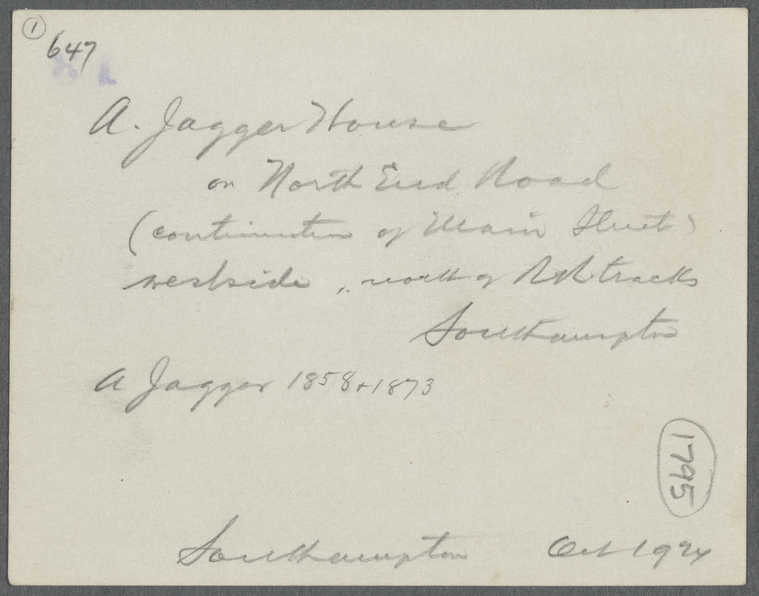 1
647
A. Jagger House
on North End Road
(continuation of Main Street)
west side, north of RR tracks
Southampton
A Jagger 1858 + 1873
1795
Southampton Oct 1924